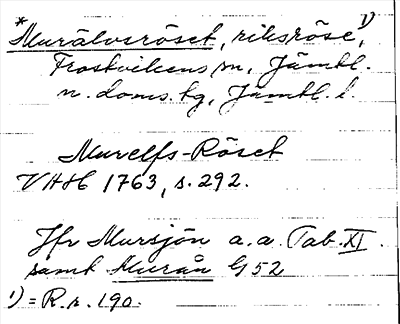 *Murälvsröset, riksröse, 1)
Frostvikens sn, Jämtl.
n. doms. tg, Jämtl. l.
Murelfs-Röset
VHH 1763, s. 292.
Jfr Mursjön a.a. Tab. XI.
samt Murån G 52
1) = R.r. 190.